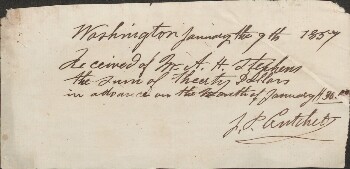 Washington January the 9th 1857
Received of Mr A. H. Stephens
the Sum of theerty Dollars
in advance on the Month of January $30.00
J. P. Crutchet